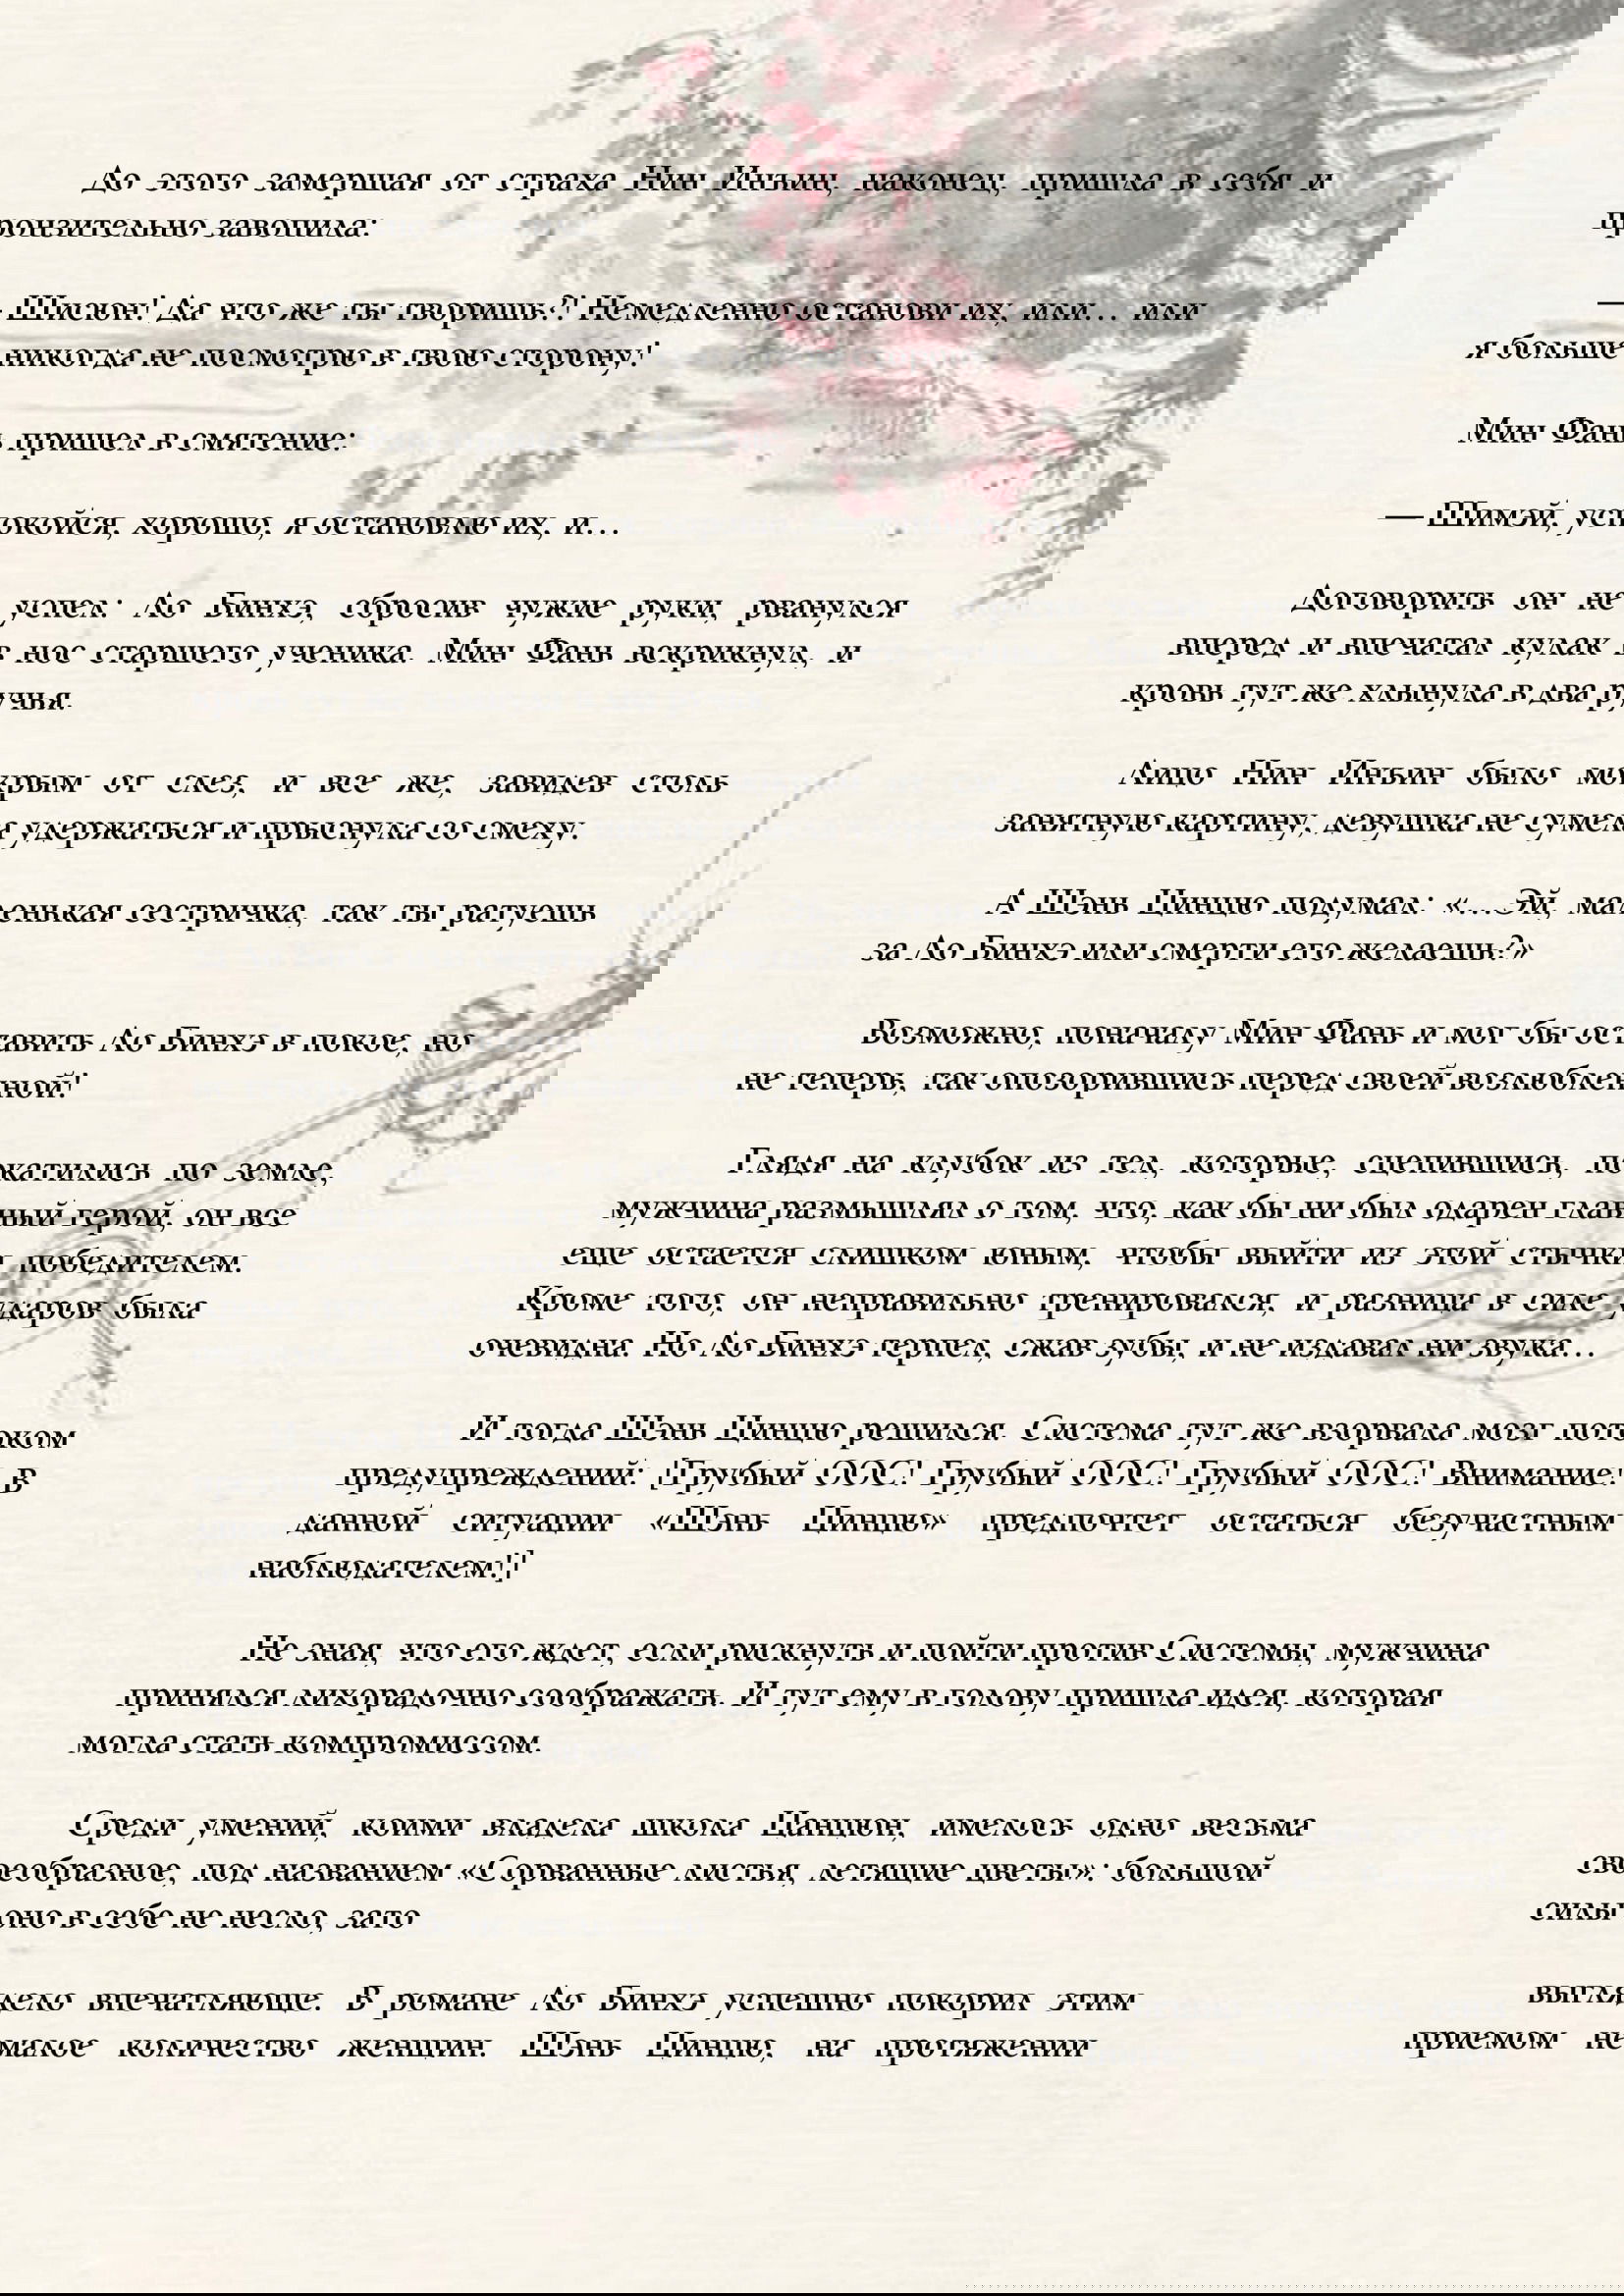 До этого замершая от страха Нин Инъин, наконец, пришла в себя и
пронзительно завопила:
— Шисюн! Да что же ты творишь?! Немедленно останови их, или… или
я больше никогда не посмотрю в твою сторону!
Мин Фань пришел в смятение:
— Шимэй, успокойся, хорошо, я остановлю их, и…
Договорить он не успел: Ло Бинхэ, сбросив чужие руки, рванулся
вперед и впечатал кулак в нос старшего ученика. Мин Фань вскрикнул, и
кровь тут же хлынула в два ручья.
Лицо Нин Инъин было мокрым от слез, и все же, завидев столь
занятную картину, девушка не сумела удержаться и прыснула со смеху.
А Шэнь Цинцю подумал: «…Эй, маленькая сестричка, так ты ратуешь
за Ло Бинхэ или смерти его желаешь?»
Возможно, поначалу Мин Фань и мог бы оставить Ло Бинхэ в покое, но
не теперь, так опозорившись перед своей возлюбленной!
Глядя на клубок из тел, которые, сцепившись, покатились по земле,
мужчина размышлял о том, что, как бы ни был одарен главный герой, он все
еще остается слишком юным, чтобы выйти из этой стычки победителем.
Кроме того, он неправильно тренировался, и разница в силе ударов была
очевидна. Но Ло Бинхэ терпел, сжав зубы, и не издавал ни звука…
И тогда Шэнь Цинцю решился. Система тут же взорвала мозг потоком
предупреждений: [Грубый ООС! Грубый ООС! Грубый ООС! Внимание! В
данной ситуации «Шэнь Цинцю» предпочтет остаться безучастным
наблюдателем!]
Не зная, что его ждет, если рискнуть и пойти против Системы, мужчина
принялся лихорадочно соображать. И тут ему в голову пришла идея, которая
могла стать компромиссом.
Среди умений, коими владела школа Цанцюн, имелось одно весьма
своеобразное, под названием «Сорванные листья, летящие цветы»: большой
силы оно в себе не несло, зато
выглядело впечатляюще. В романе Ло Бинхэ успешно покорил этим
приемом немалое количество женщин. Шэнь Цинцю, на протяжении